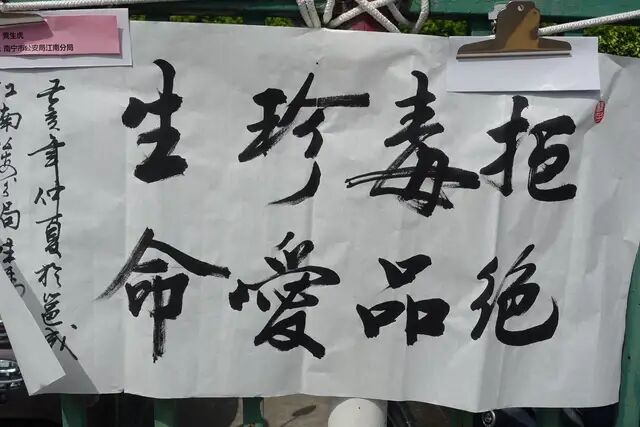 黄生虎
南宁市公安局江南分局
拒绝
毒品
珍愛
生命
己亥年仲夏於邕城
江南公安分局生